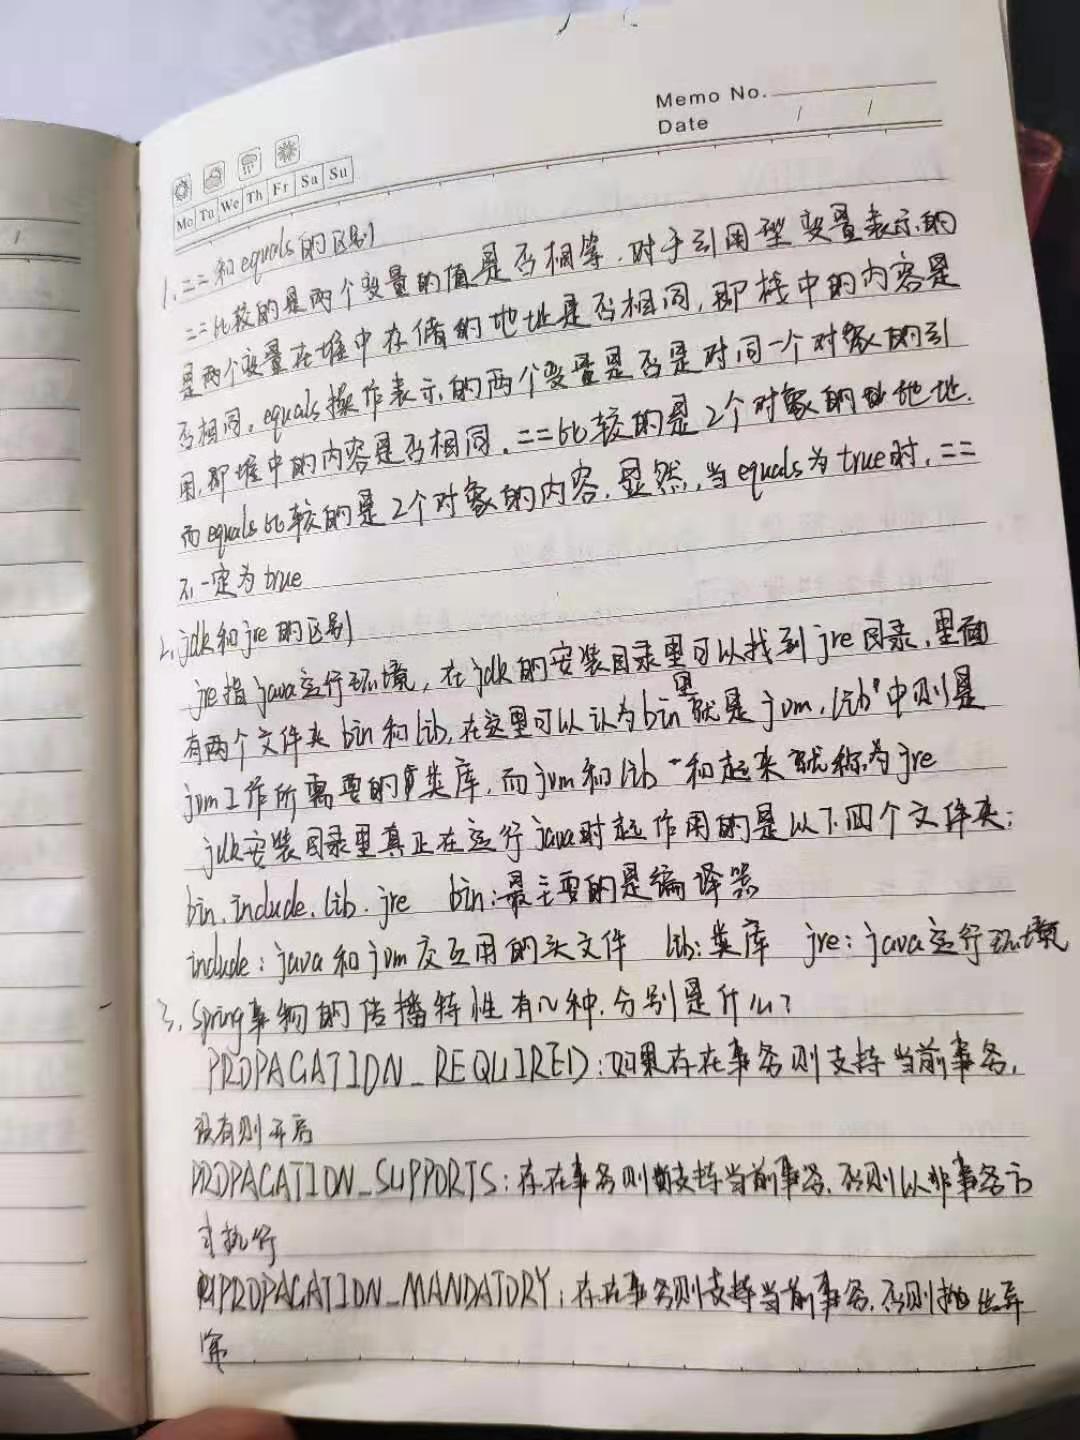 Memo No.
Date / /
Mo Tu We Th Fr Sa Su
1. ==和equals的区别
==比较的是两个变量的值是否相等.对于引用型变量表示的
是两个变量在堆中存储的地址是否相同,即栈中的内容是
否相同。equals操作表示的两个变量是否是对同一个对象的引
用,即堆中的内容是否相同.==比较的是2个对象的地址.
而equals比较的是2个对象的内容.显然,当equals为true时,==
不一定为true
2. jdk和jre的区别
jre指java运行环境,在jdk的安装目录里可以找到jre目录,里面
有两个文件夹bin和lib,在这里可以认为bin里就是jvm,lib中则是
jvm工作所需要的类库,而jvm和lib一和起来就称为jre
jdk安装目录里真正在运行java时起作用的是以下四个文件夹:
bin.include.lib.jre bin:最主要的是编译器
include:java和jvm交互用的头文件 lib:类库 jre:java运行环境
3. Spring事物的传播特性有几种.分别是什么?
PROPAGATION_REQUIRED:如果存在事务则支持当前事务,
没有则开启
PROPAGATION_SUPPORTS:存在事务则支持当前事务.否则以非事务方
式执行
PROPAGATION_MANDATORY:存在事务则支持当前事务.否则抛出异
常